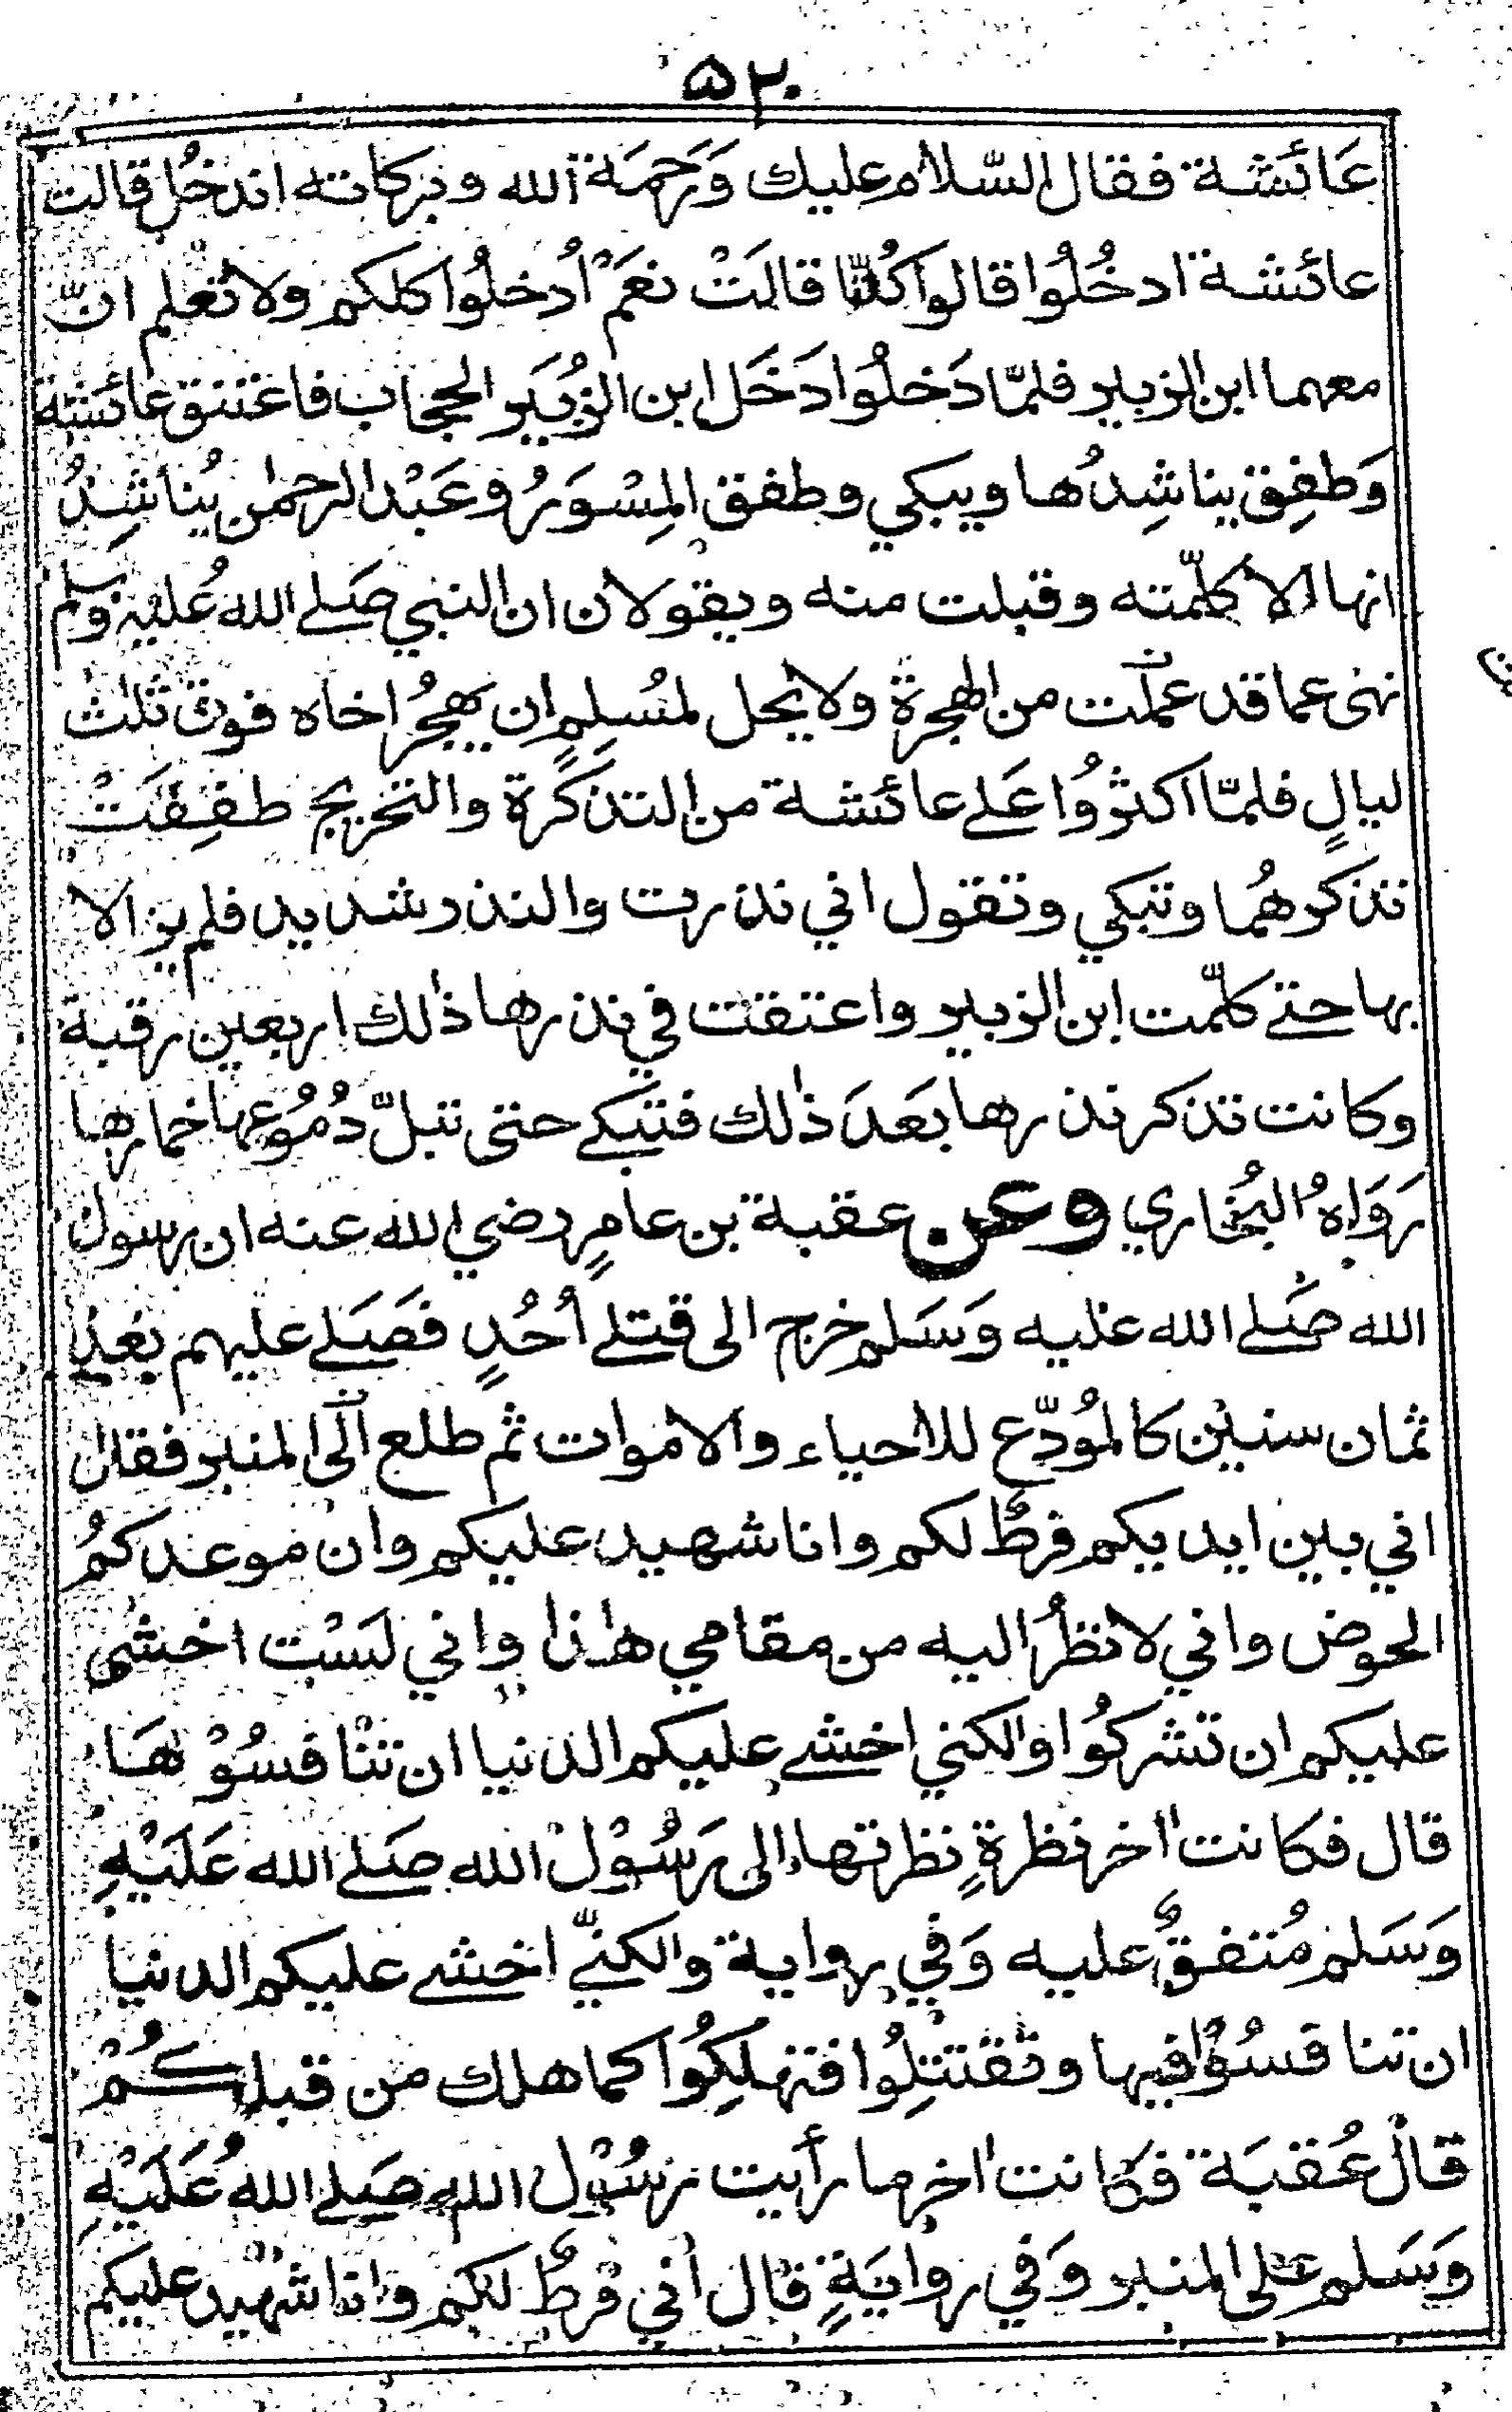 ۵۲۰
عَائشة فقال السّلام عليك وَرَحمَة الله وبركاته اندخُل قالت
عائشة ادخُلُوا قالوا كُلّنا قالَتْ نعَمْ اُدخلُوا كلكم ولا تعلم انّ
معهما ابن الزبير فلمّا دَخلُوا دَخَل ابن الزُبَير الحجاب فاعتنق عائشة
وَطفِق يناشِدُها ويبكي وطفق المِسْوَرُ وعَبْد الرحمٰن يُناشِدُ
انها الا كلّمته وقبلت منه ويقولان ان النبي صَلے الله عُليه وسلم
نهى عما قد عملت من الهجرة ولا يحل لمُسلِمٍ ان يهجُر اخاه فوق ثلث
ليالٍ فلمّا اكثرُوا عَلے عائشة من التذكرة والتحريج طفِقَتْ
تذكرهُما وتبكي وتقول اني نذرت والنذر شديد فلم يزالا
بها حتے كلّمت ابن الزبير واعتقت في نذرها ذٰلك اربعين رقبة
وكانت تذكر نذرها بعَدَ ذٰلك فتبكے حتى تبلّ دُمُوعها خمارها
رَوَاهُ البُخاري وعن عقبة بن عامرٍ رضي الله عنه ان رسول
الله صَلے الله عليه وَسَلم خرج الى قتلے اُحُدٍ فَصَلے عليهم بَعْدَ
ثمان سنين كالمُودّع للاحياء والاموات ثم طلع الى المنبر فقال
اني بين ايديكم فرطٌ لكم وانا شهيد عليكم وان موعدكمُ
الحوض واني لانظُرُ اليه من مقامي هٰذا واني لَسْت اخشى
عليكم ان تشركُوا ولكني اخشے عليكم الدنيا ان تنافسُوْهَا
قال فكانت اٰخر نظرةٍ نظرتها الى رَسُوْل الله صَلے الله عَلَيْهِ
وَسَلم مُتفقٌ عليه وَفي رواية ولكنّي اخشے عليكم الدنيا
ان تنافسُوْا فيها وتقتتِلُوا فتهلِكُوا كما هلك من قبلكُمْ
قال عُقبَة فكانت اٰخر ما رأيت رسُوْل الله صَلے اللهُ عَلَيْهِ
وَسَلم على المنبر وَفي روايَةٍ قال اني فرطٌ لكم وانا شهيد عليكم